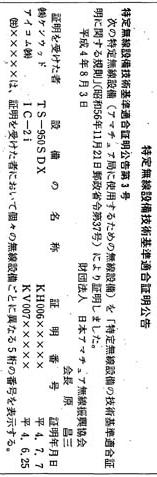 特定無線設備技術基準適合証明公告
特定無線設備技術基準適合証明公告第3号
次の特定無線設備(アマチュア局に使用するための無線設備)を「特定無線設備の技術基準適合証
明に関する規則」(昭和56年11月21日郵政省令第37号)により証明しました。
平成4年8月3日
財団法人 日本アマチュア無線振興協会
会長 原 昌三
証明を受けた者 設備の名称 証明番号 証明年月日
㈱ケンウッド TS-950SDX KH006××××× 平4. 7. 7
アイコム㈱ IC-2i KV007××××× 平4. 6.25
㊟×××××は、証明を受けた者において個々の無線設備ごとに異なる5桁の番号を表示する。